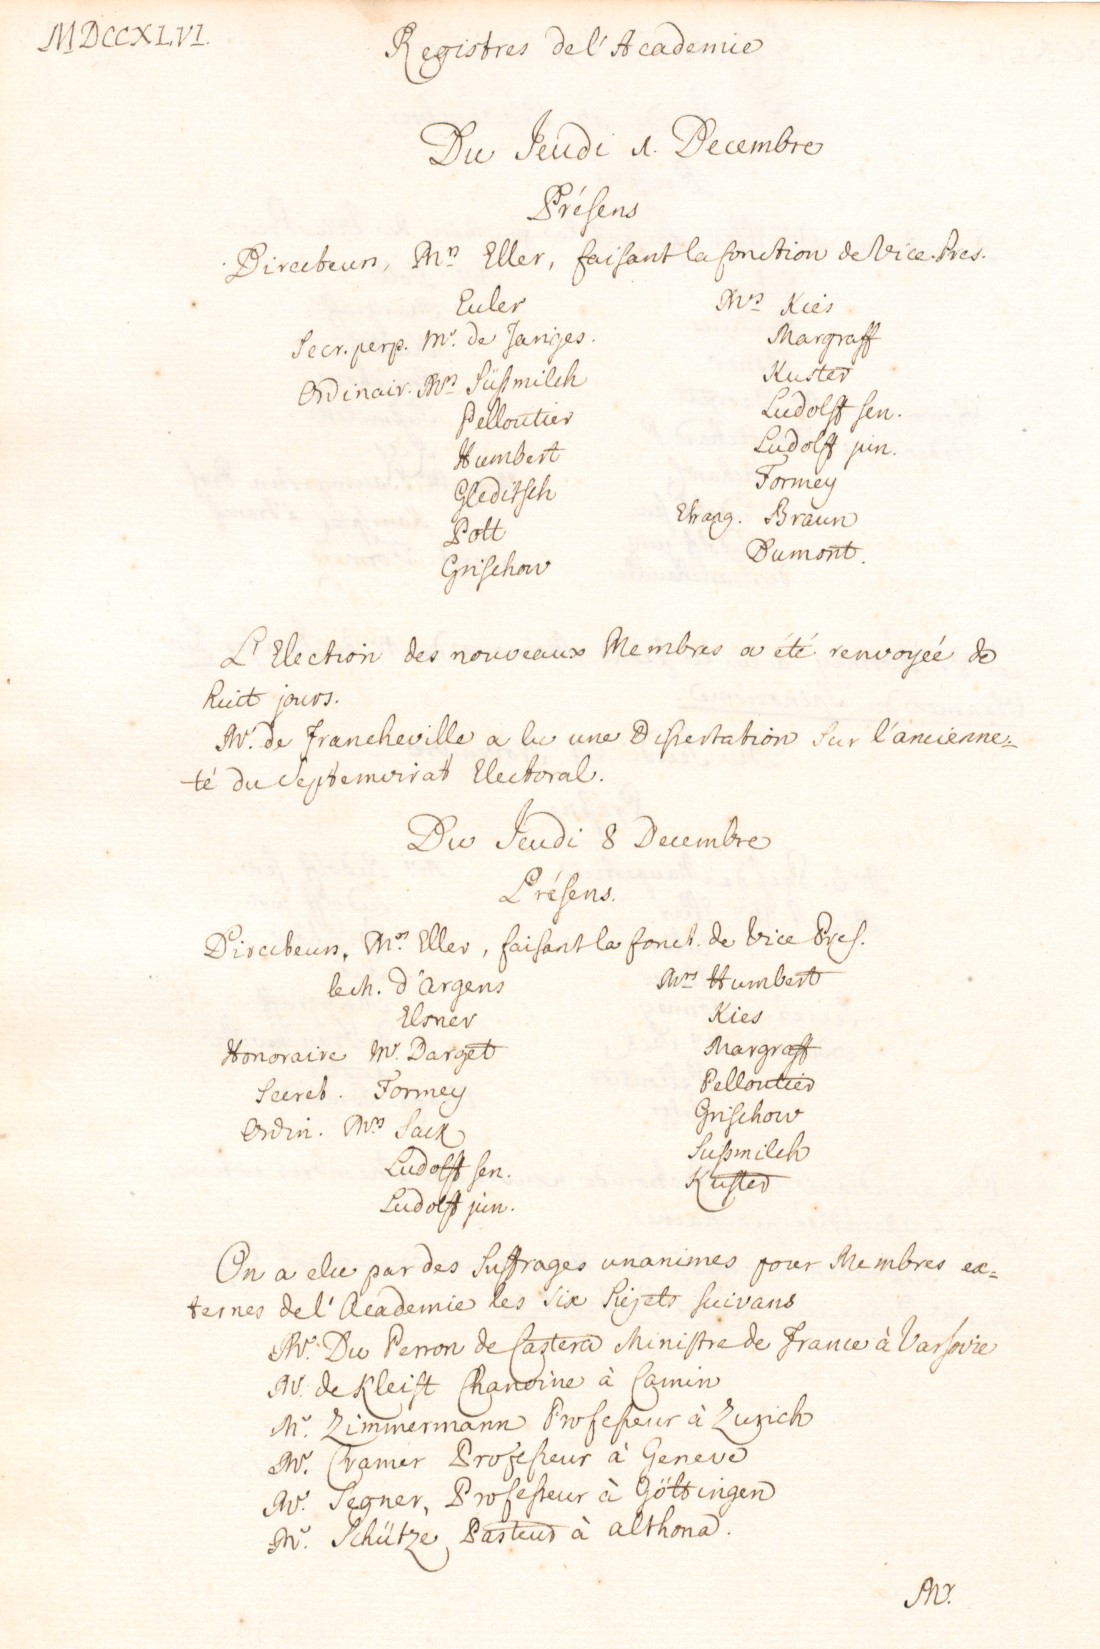 MDCCXLVI.
Registres de l'Academie
Du Jeudi 1. Decembre
Présens
Directeurs, Mrs Eller, faisant la fonction de Vice-Pres.
Euler
Secr. perp. Mr. de Jariges.
Ordinair. Mrs Süßmilch
Pelloutier
Humbert
Gleditsch
Pott
Grischow
Mrs Kies
Margraff
Kuster
Ludolff sen.
Ludolff jun.
Formey
Etrang. Braun
Dumont.
L'Election des nouveaux Membres a été renvoyée de
huit jours.
Mr. de Francheville a lu une Dissertation sur l'ancienne=
té du Septemvirat Electoral.
Du Jeudi 8 Decembre
Présens.
Directeurs, Mrs Eller, faisant la fonct. de Vice Pres.
le ch. d'Argens
Elsner
Honoraire Mr. Darget
Secret. Formey
Ordin. Mrs Sack
Ludolff sen.
Ludolff jun.
Mrs Humbert
Kies
Margraff
Pelloutier
Grischow
Sußmilch
Kuster
On a elu par des suffrages unanimes pour Membres ex=
ternes de l'Academie les six sujets suivans
Mr. Du Perron de Castera Ministre de France à Varsovie
Mr. de Kleist Chanoine à Camin
Mr. Zimmermann Professeur à Zurich
Mr. Cramer Professeur à Geneve
Mr. Segner, Professeur à Göttingen
Mr. Schütze Pasteur à Althona.
Mr.